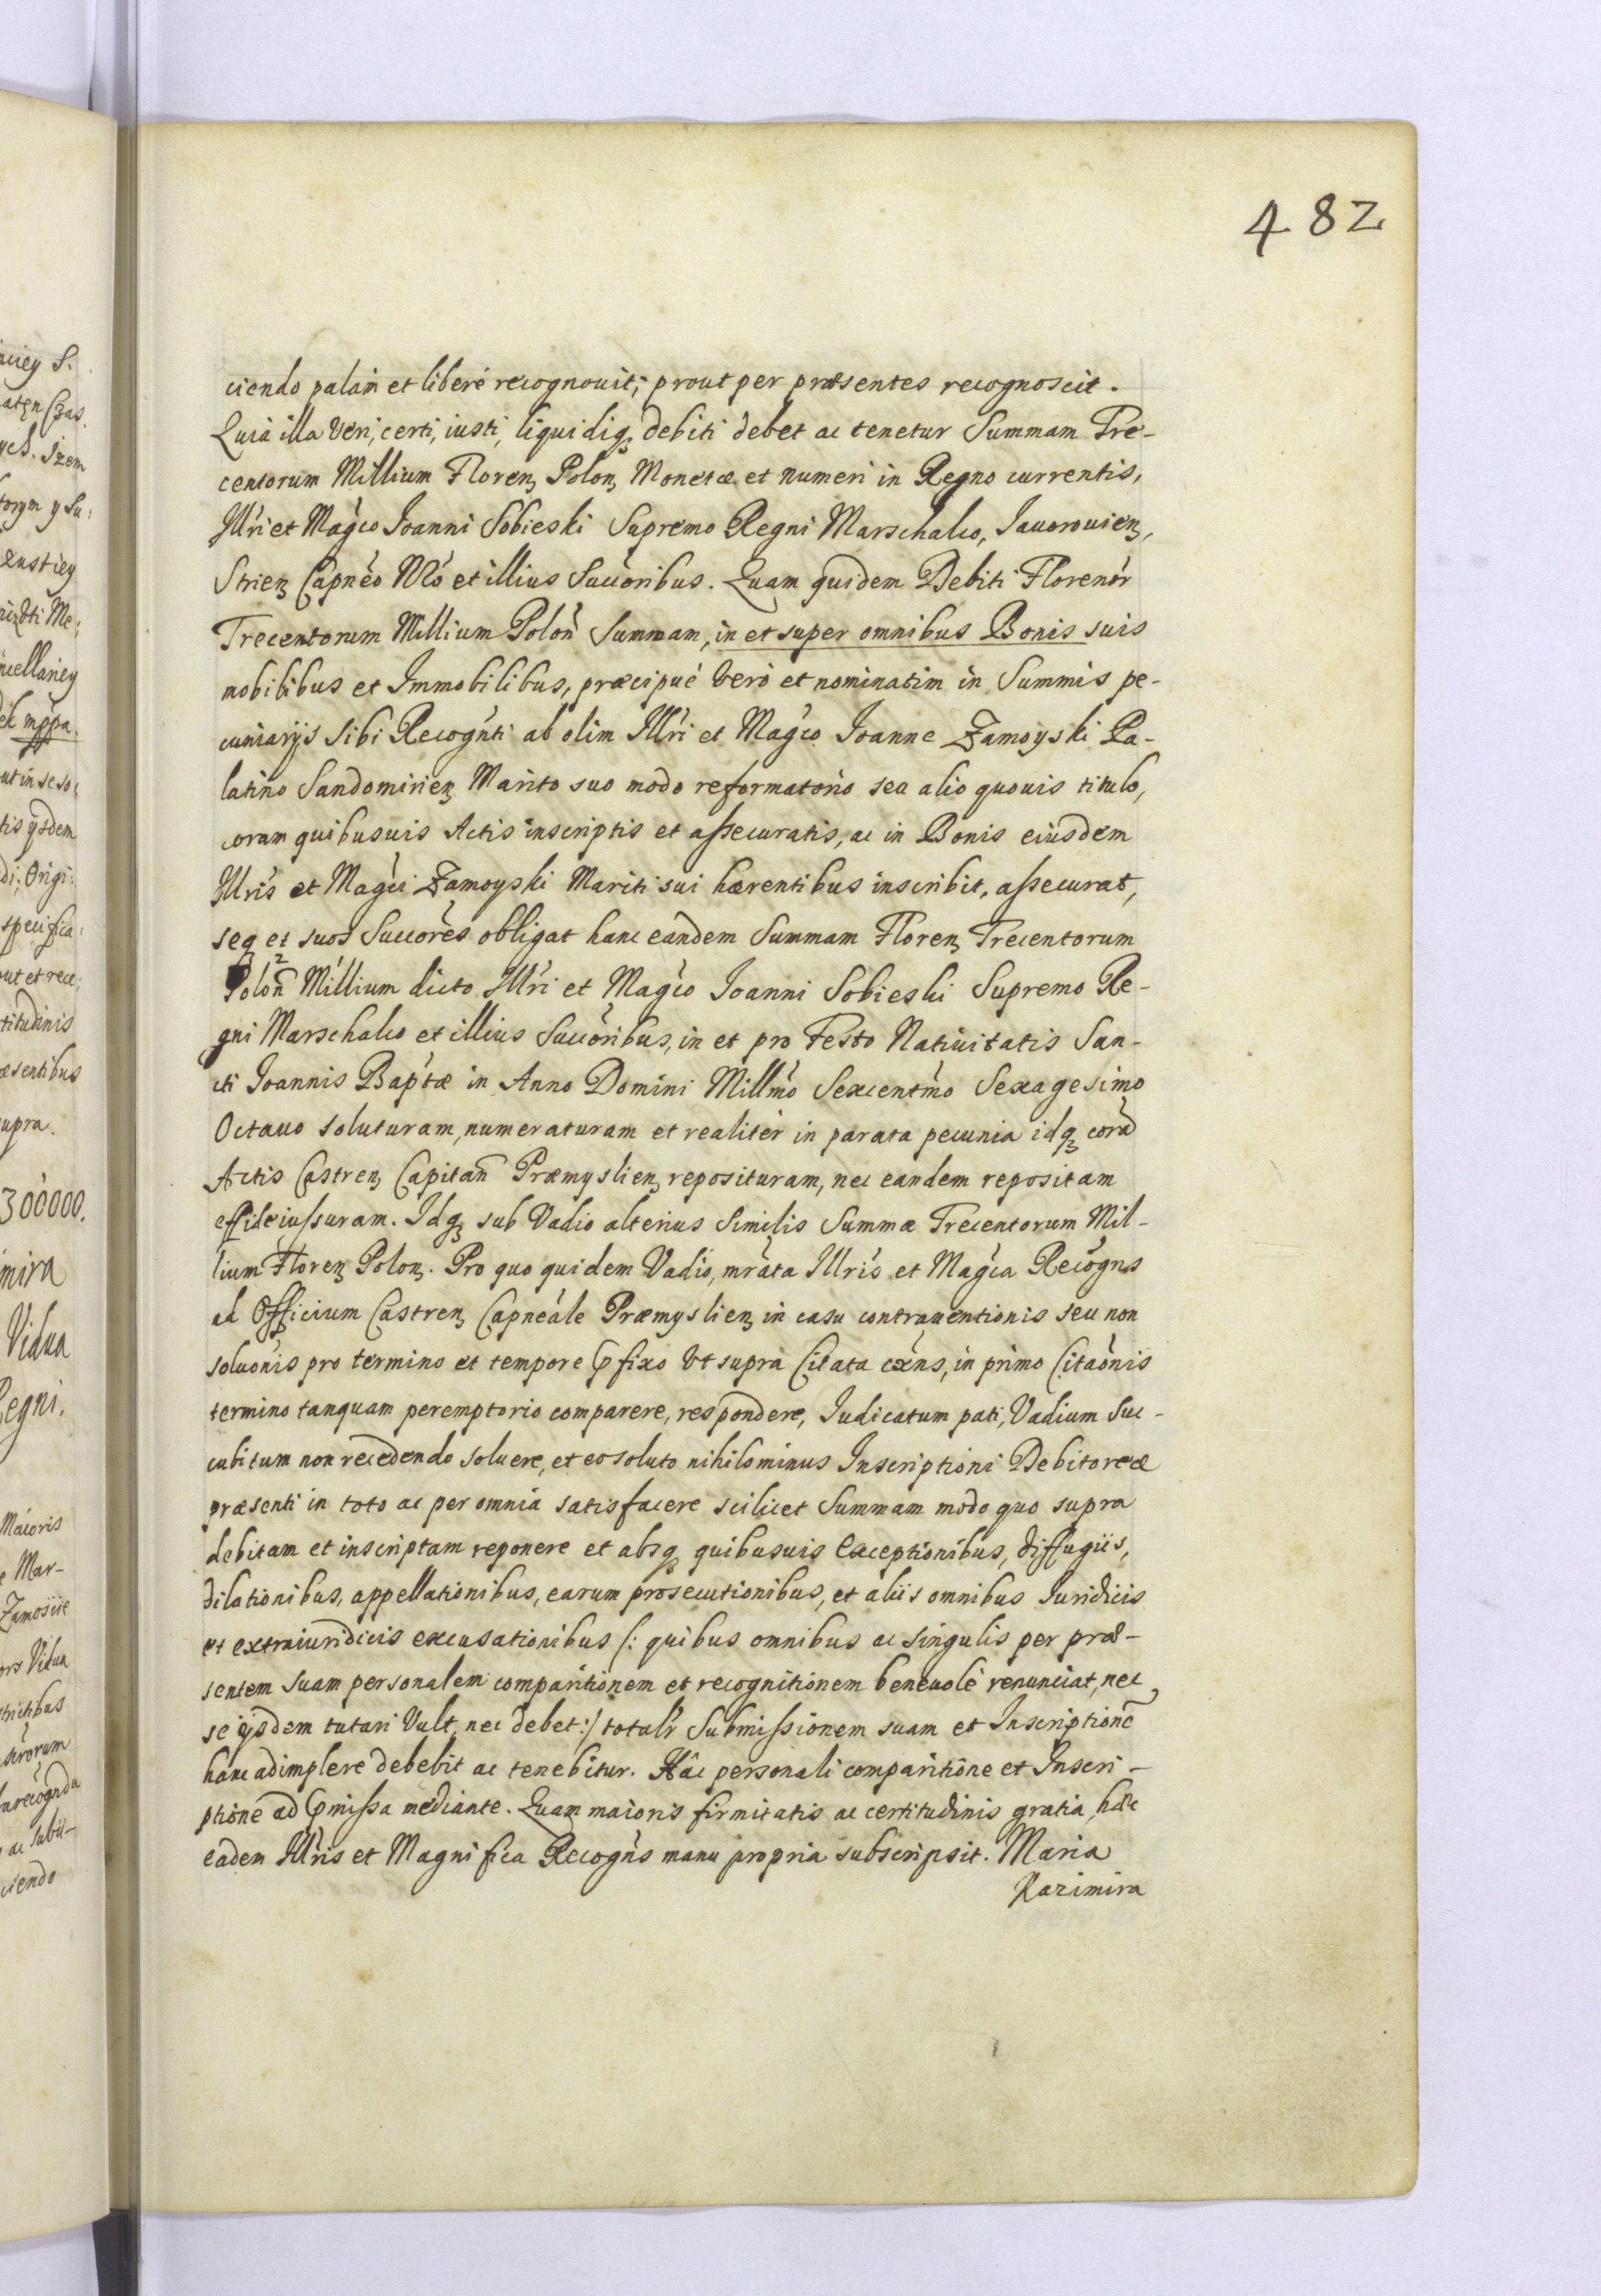 482
ciendo palàm et liberè recognouit; prout per præsentes recognoscit.
Quià illa Veri, certi, iusti, liquidiq3 debiti debet ac tenetur Summam Tre-
centorum Millium Floren3 Polon3 Monetæ et numeri in Regno currentis,
Illri et Magco Joanni Sobieski Supremo Regni Marschalco, Jauorouien3,
Strien3 Capneo Nro et illius Succoribus. Quam quidem Debiti Florenor
Trecentorum Millium Polon Summam, in et super omnibus Bonis suis
mobilibus et Immobilibus, præcipuè Verò et nominatim in Summis pe-
cuniarijs Sibi Recognti ab olim Illri et Magco Joanne Zamoyski Pa-
latino Sandomirien3 Marito suo modo reformatorio seu alio quouis titulo,
coram quibusuis Actis inscriptis et assecuratis, ac in Bonis eiusdem
Illris et Magci Zamoyski Mariti sui hærentibus inscribit, assecurat,
seq3 et suos Succores obligat hanc eandem Summam Floren3 Trecentorum
Polon 2 Millium dicto Illri et Magco Joanni Sobieski Supremo Re-
gni Marschalco et illius Succoribus, in et pro Festo Natiuitatis San-
cti Joannis Baptæ in Anno Domini Millmo Sexcentmo Sexagesimo
Octauo soluturam, numeraturam et realitèr in parata pecunia idq3 corã
Actis Castren3 Capitan Præmyslien3 reposituram, nec eandem repositam
effideiussuram. Idq3 sub Vadio alterius Similis Summæ Trecentorum Mil-
lium Floren3 Polon3. Pro quo quidem Vadio, mrata Illris et Magca Recogns
ad Officium Castren3 Capneale Præmyslien3 in casu contrauentionis seu non
soluonis pro termino et tempore p fixo Vt supra Citata exns, in primo Citaonis
termino tanquam peremptorio comparere, respondere, Judicatum pati, Vadium Suc-
cubitum non recedendo soluere, et eo soluto nihilominus Inscriptioni Debitoreæ
præsenti in toto ac per omnia satisfacere scilicet Summam modo quo supra
debitam et inscriptam reponere et absq3 quibusuis Exceptionibus, diffugiis,
dilationibus, appellationibus, earum prosecutionibus, et aliis omnibus Juridicis
et extraiuridicis excusationibus /: quibus omnibus ac singulis per præ-
sentem suam personalem comparitionem et recognitionem beneuolè renunciat, nec
se ijsdem tutari Vult, nec debet :/ totalr Submissionem suam et Inscriptionẽ
hanc adimplere debebit ac tenebitur. Hâc personali comparitione et Inscri-
ptione ad pmissa mediante. Quam maioris firmitatis ac certitudinis gratia, hæc
eadem Illris et Magnifica Recogns manu propria subscripsit. Maria
Kazimira